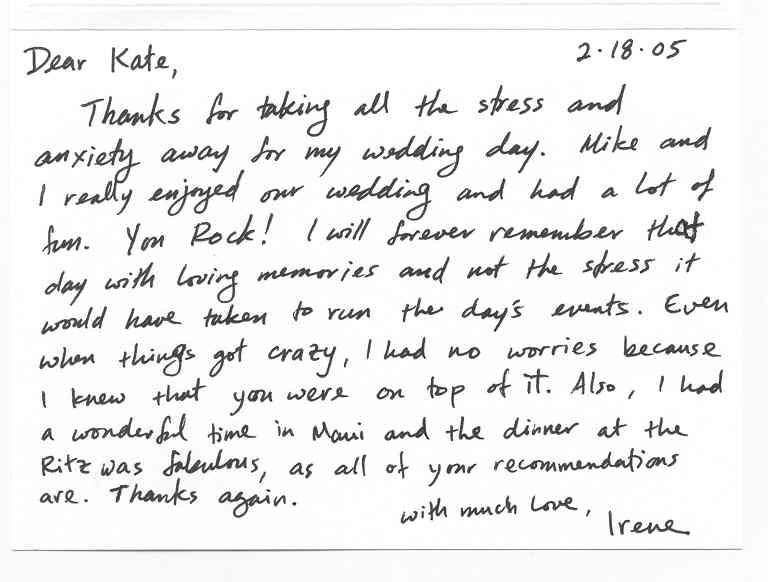 Dear Kate, 2·18·05
Thanks for taking all the stress and
anxiety away for my wedding day. Mike and
I really enjoyed our wedding and had a lot of
fun. You Rock! I will forever remember that
day with loving memories and not the stress it
would have taken to run the day's events. Even
when things got crazy, I had no worries because
I knew that you were on top of it. Also, I had
a wonderful time in Maui and the dinner at the
Ritz was fabulous, as all of your recommendations
are. Thanks again.
with much love,
Irene